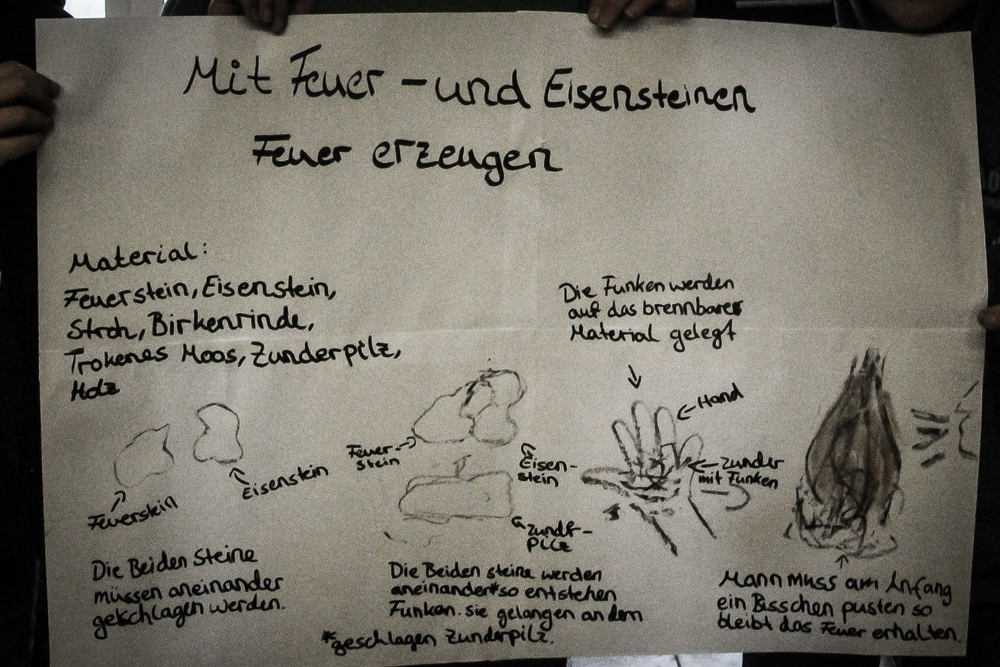 Mit Feuer - und Eisensteinen
Feuer erzeugen
Material:
Feuerstein, Eisenstein,
Stroh, Birkenrinde,
Trokenes Moos, Zunderpilz,
Holz
Feuerstein
Eisenstein
Die Beiden Steine
müssen aneinander
geschlagen werden.
Feuer-
stein
Eisen-
stein
Zunder-
pilz
Die Beiden steine werden
aneinander*so entstehen
Funken. sie gelangen an dem
*geschlagen Zunderpilz.
Die Funken werden
auf das brennbares
Material gelegt
Hand
Zunder
mit Funken
Mann muss am Anfang
ein Bisschen pusten so
bleibt das Feuer erhalten.